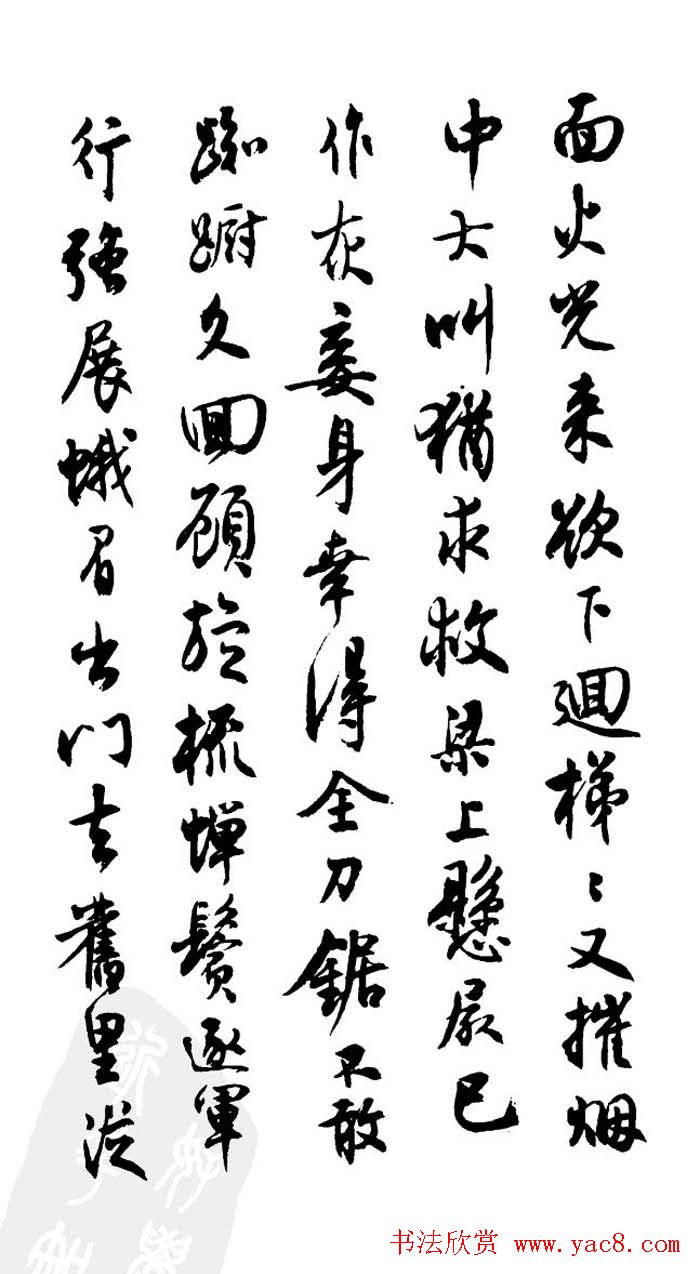 面火光来欲下迴梯〻又摧烟
中大叫猶求救梁上懸屍已
作灰妾身幸得全刀鋸不敢
踟蹰久回顾旋梳蝉鬓逐軍
行強展蛾眉出門去舊里従
书法欣赏 www.yac8.com